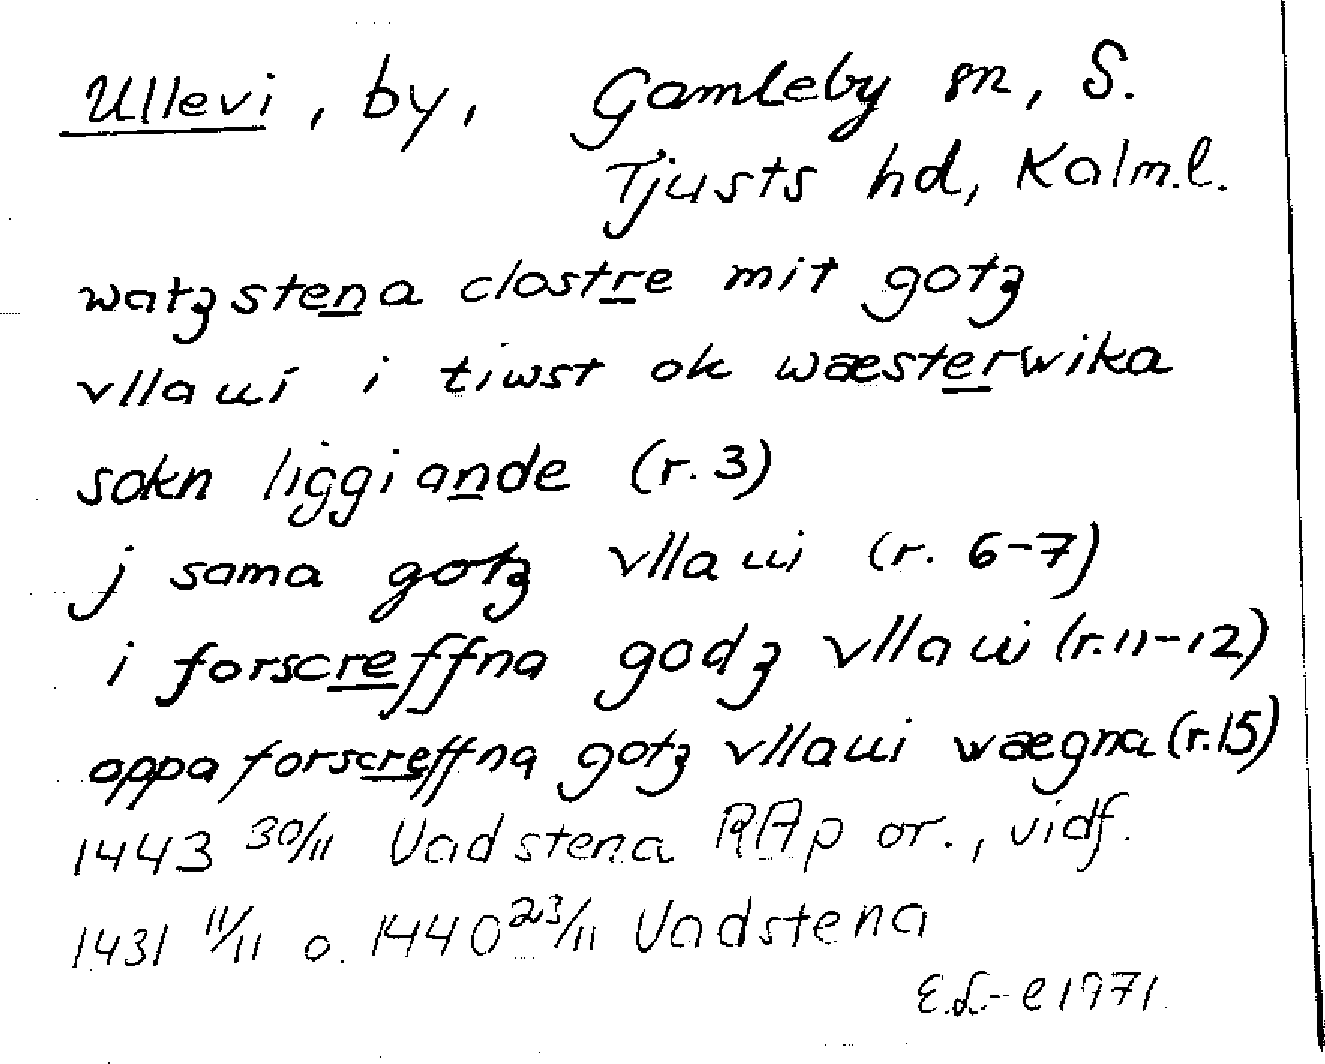 Ullevi, by, Gamleby sn, S.
Tjusts hd, Kalm.l.
watzstena clostre mit gotz
vllaui i tiwst ok wæsterwika
sokn liggiande (r. 3)
j sama gotz vllaui (r. 6-7)
i forscreffna godz vllaui (r. 11-12)
oppa forscreffna gotz vllaui wægna (r. 15)
1443 30/11 Vadstena RAp or., vidf.
1431 11/11 o. 1440 23/11 Vadstena
E.L-e 1971.